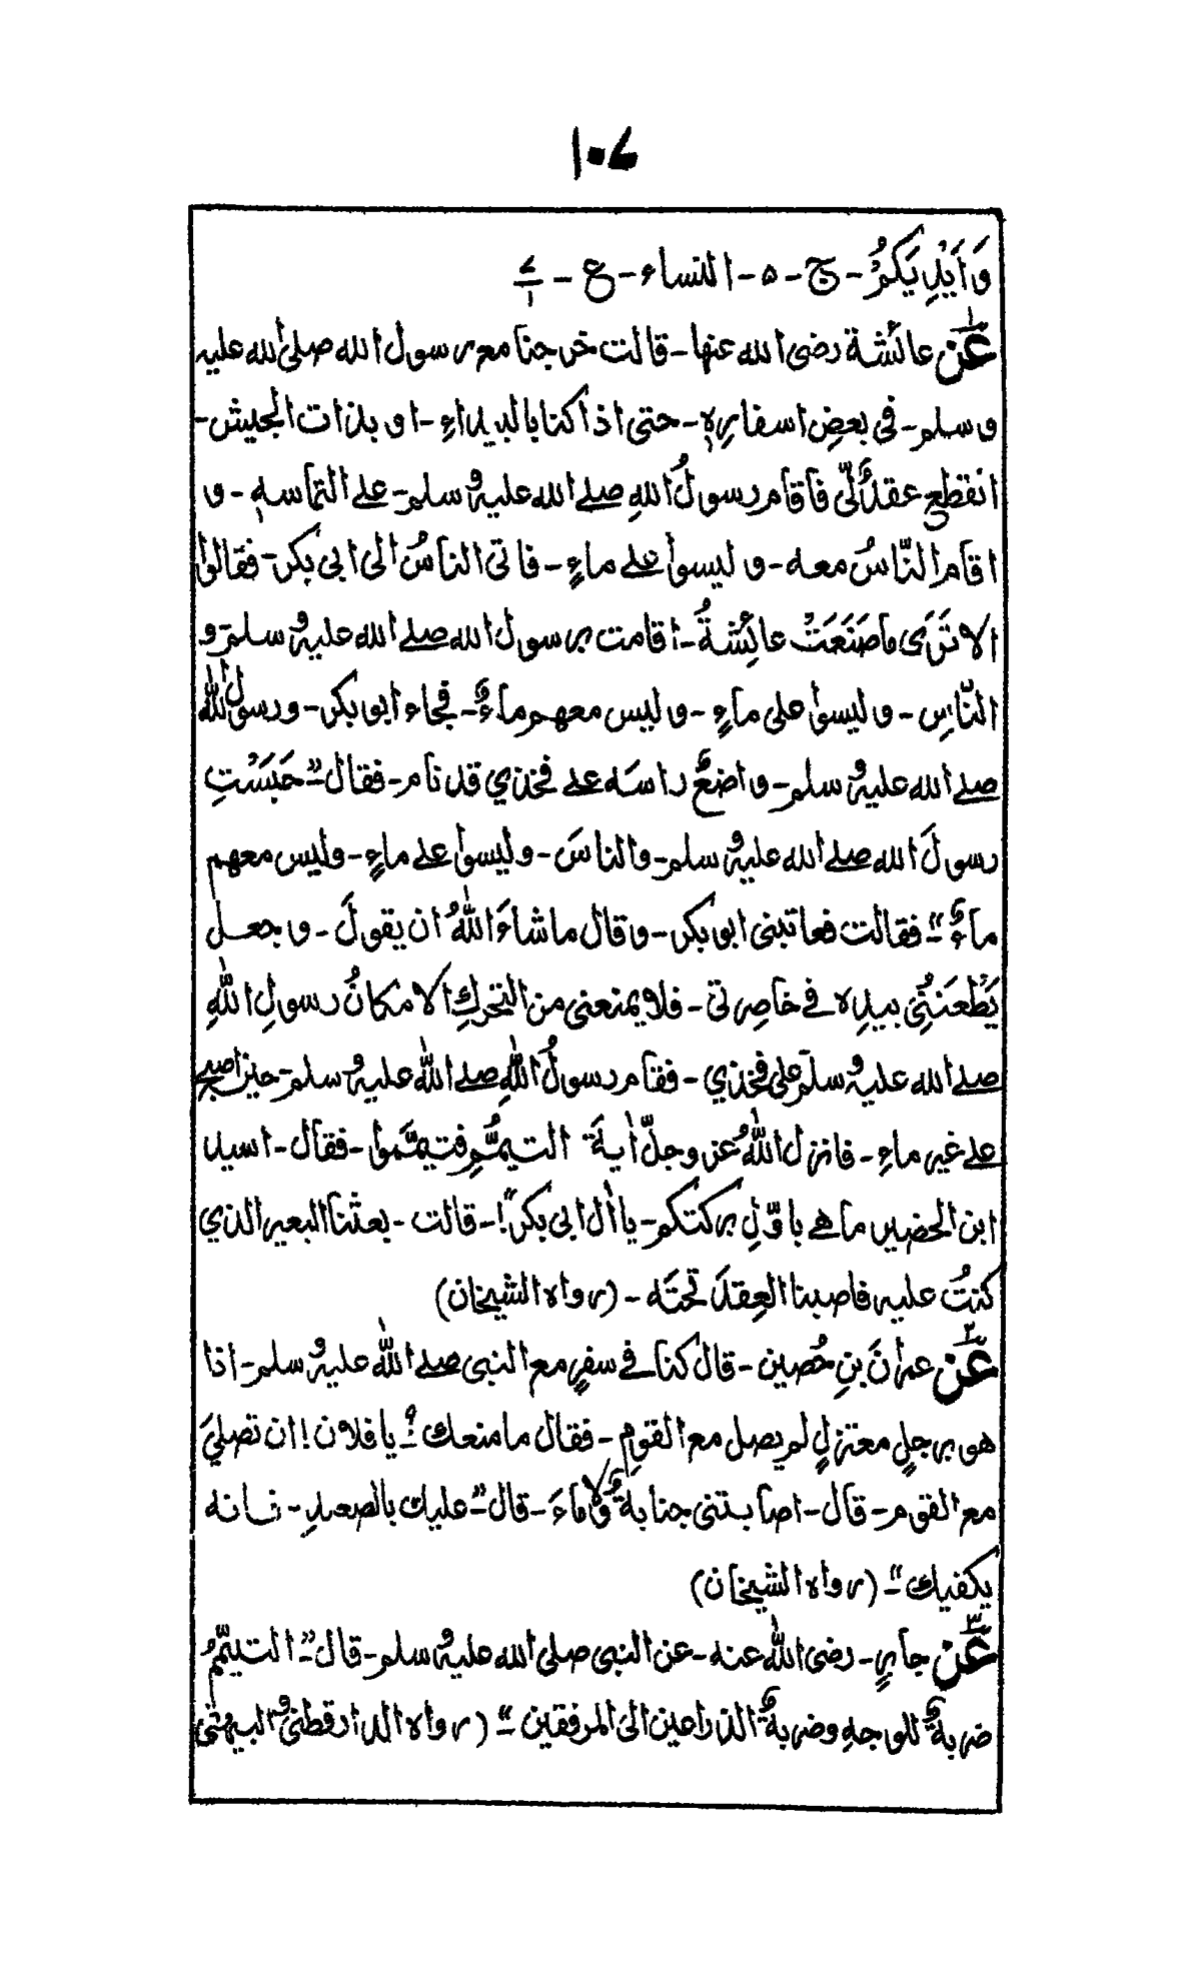 ١٠٧
وَاَيْدِيَكُمْ - ج - ٥ - النساء - ع - ٧/١
عَنْ ١ عائشة رضى الله عنها - قالت خرجنا مع رسول الله صلى الله عليه
و سلم - فى بعضِ اسفارِهٖ - حتى اذا كنا بالبيداءِ - او بذات الجيش -
انقطع عقدٌ لّى فاقام رسولُ اللهِ صلے الله عليہ و سلم - علے التماسهٖ - و
اقام النّاسُ معه - و ليسوا علے ماءٍ - فاتى الناسُ الى ابى بكر - فقالوا
الا تَرَى ما صَنَعَتْ عائِشةُ - اقامت برسول الله صلے الله عليہ و سلم - و
النّاسِ - و ليسوا على ماءٍ - و ليس معهم ماءٌ - فجاء ابو بكر - و رسولُ الله
صلے الله عليہ و سلم - واضعٌ راسَه علے فخذي قد نام - فقال "حَبَسْتِ
رسولَ الله صلے الله عليہ و سلم - والناسَ - و ليسوا علے ماءٍ - وليس معهم
ماءٌ" - فقالت فعاتبنى ابو بكر - و قال ما شاءَ اللهُ ان يقولَ - و جعل
يَطْعَنُنِي بيدِه فے خاصِرتى - فلا يمنعنى من التحركِ الا مكانُ رسولِ اللهِ
صلے الله عليہ و سلم على فخذي - فقام رسولُ اللهِ صلے الله عليہ و سلم - حين اصبح
علے غير ماءٍ - فانزل اللهُ عز وجلّ اٰيةَ التيمُّمِ فتيمَّموا - فقال - اسيد
ابن الحضير ما هے باوّلِ بركتكم - يا اٰل ابى بكر"! - قالت - بعثنا البعير الذي
كنتُ عليه فاصبنا العِقدَ تحتَه - (رواه الشيخان)
عَنْ ٢ عمرانَ بنِ حُصين - قال كنا فے سفرٍ مع النبى صلے الله عليہ و سلم - اذا
هو برجلٍ معتزلٍ لم يصل مع القومِ - فقال ما منعك ؟ - يا فلان ! ان تصليَ
مع القوم - قال - اصابتنى جنابةٌ ولا ماءَ - قال "عليك بالصعيدِ - فانه
يكفيك" - (رواه الشيخان)
عَنْ ٣ جابرٍ - رضى الله عنه - عن النبى صلى الله عليہ و سلم - قال "التيمّمُ
ضربةٌ للوجهِ و ضربةٌ الذراعين الى المرفقين" - (رواه الدارقطنى و البيهقى